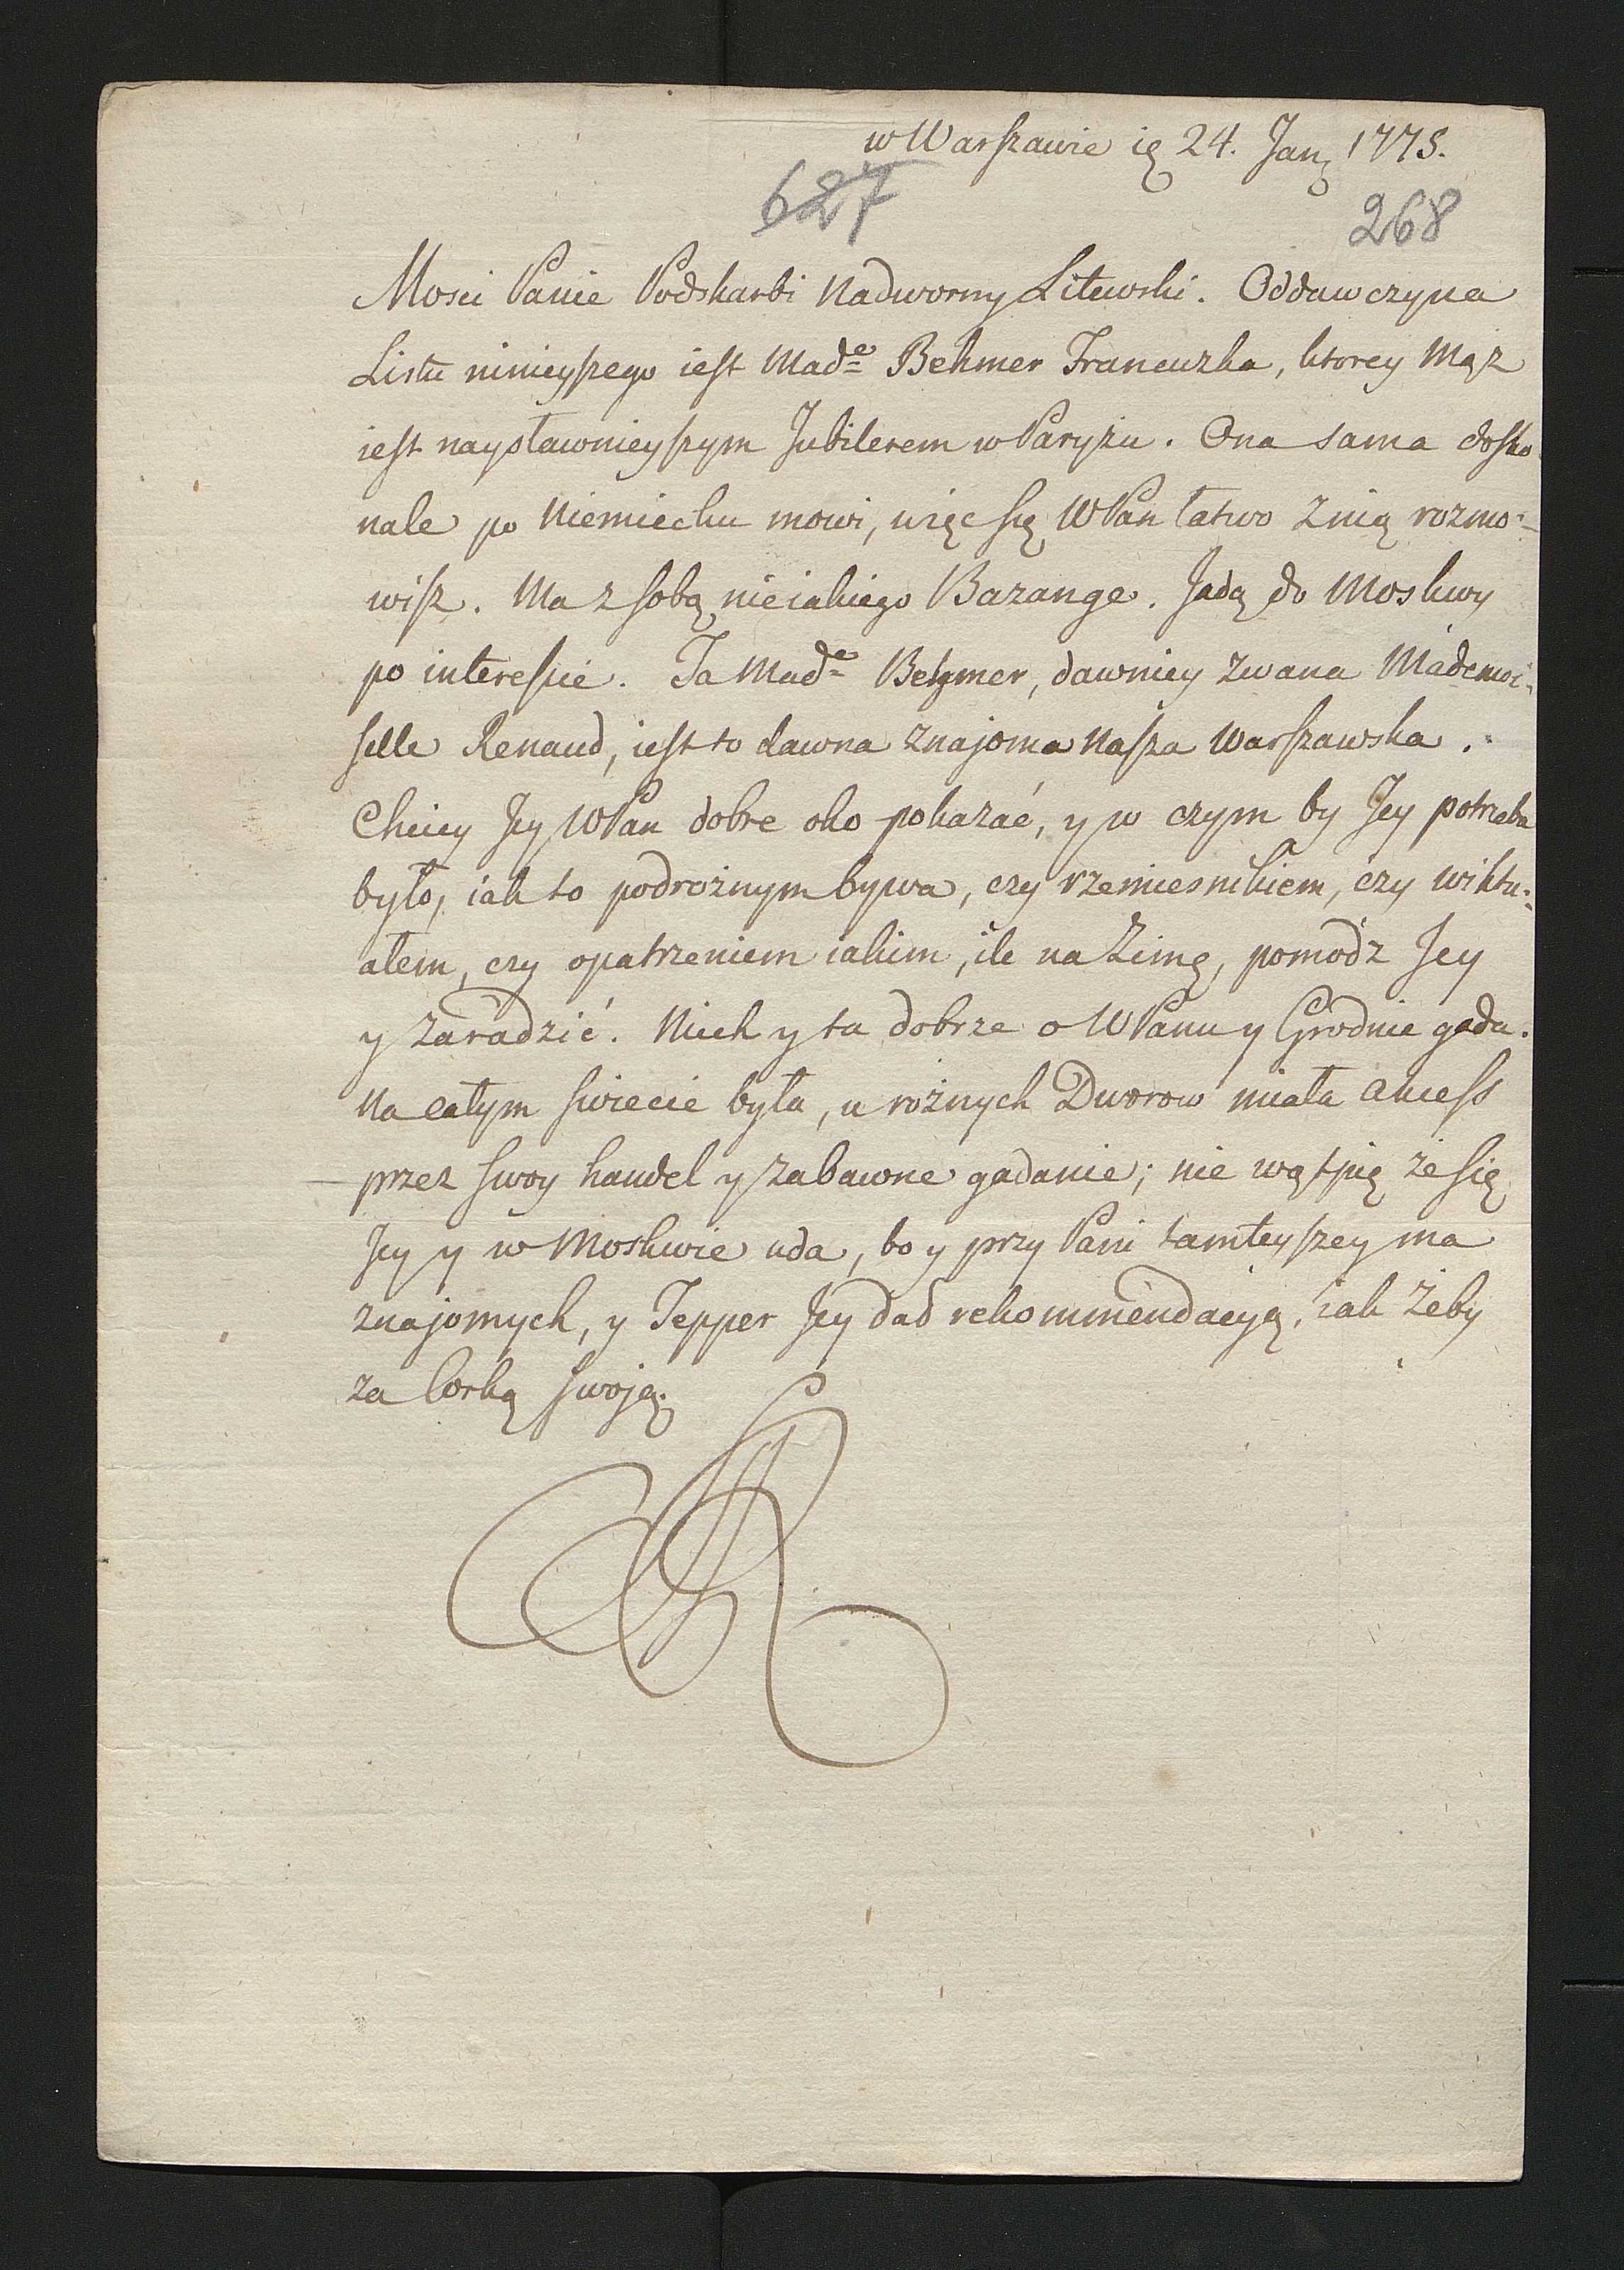 w Warszawie ię 24. Janȝ 1775.
627
268
Mosci Panie Podskarbi Nadworny Litewski. Oddawczyna
Listu ninieyszego iest Madᵉ Behmer Francuzka, ktorey Mąż
iest naysławnieyszym Jubilerem w Paryżu. Ona sama dosko
nale po Niemiecku mowi, więc się WPan łatwo z nią rozmo-
wisz. Ma z sobą nieiakiego Bazange. Jadą do Moskwy
po interessie. Ta Madᵉ Behmer, dawniey zwana Mademoi-
selle Renaud, iest to dawna znajoma Nasza Warszawska.
Chciey Jey WPan dobre oko pokazać, y w czym by Jey potrzeba
było, iak to podrożnym bywa, czy rzemiesnikiem, czy wiktu-
ałem, czy opatrzeniem iakim, ile na Zimę, pomodz Jey
y zaradzić. Niech y ta dobrze o WPanu y Grodnie gada.
Na całym swiecie była, u rożnych Dworow miała akcess
przez swoy handel y zabawne gadanie; nie wątpię że się
Jey y w Moskwie uda, bo y przy Pani tamteyszey ma
znajomych, y Tepper Jey dał rekommendacyą, iak żeby
za Corką swoją.